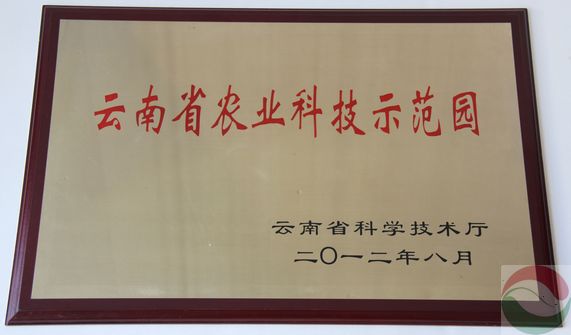 云南省农业科技示范园
云南省科学技术厅
二〇一二年八月